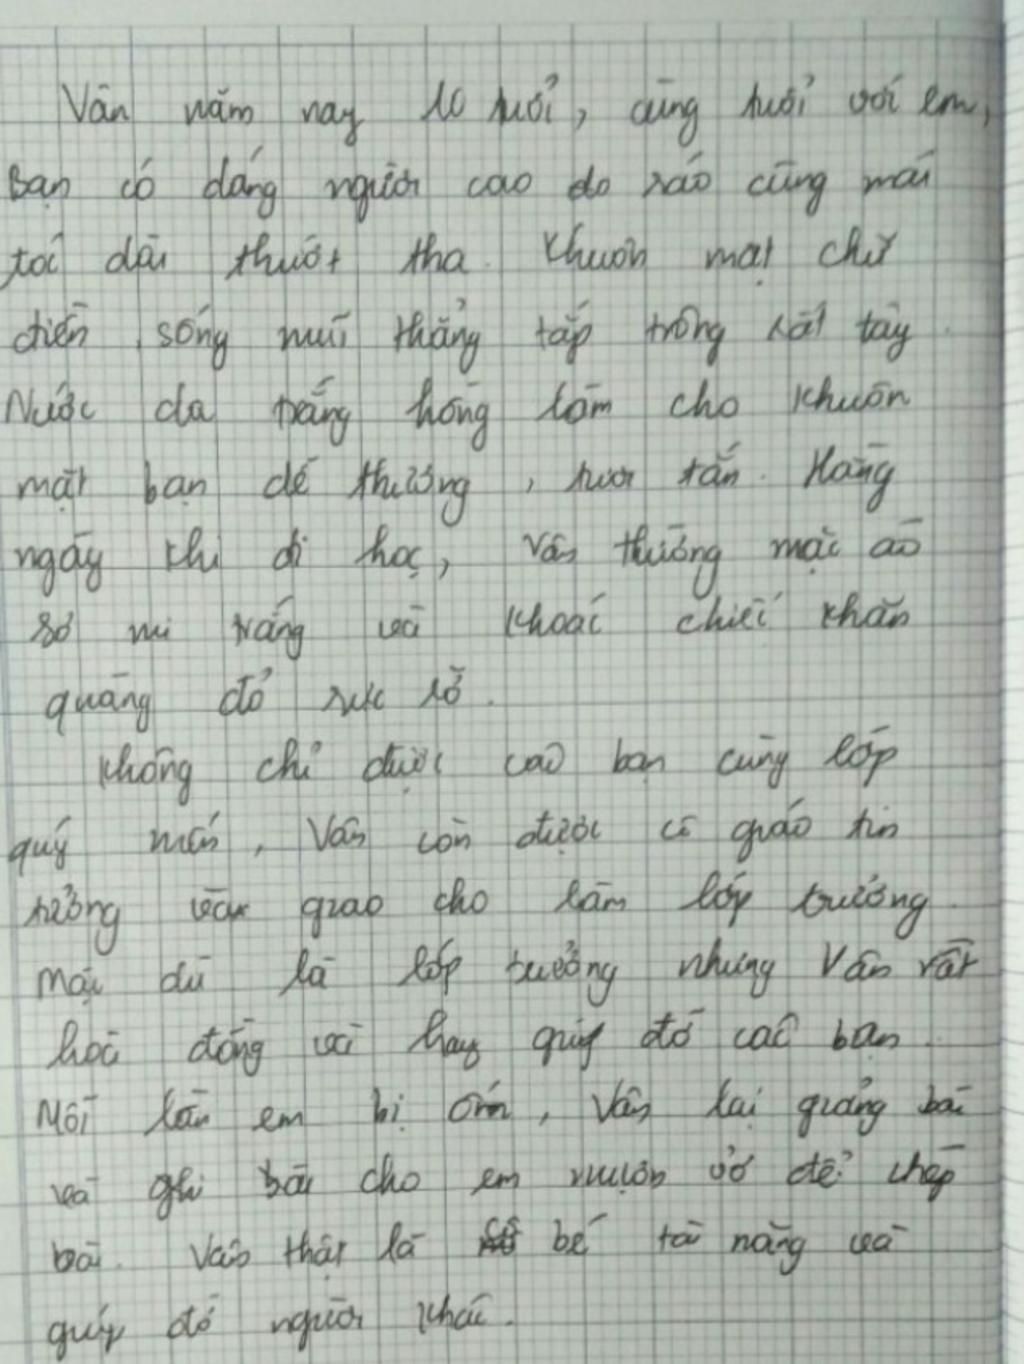 Vân năm nay 10 tuổi, cùng tuổi với em,
Bạn có dáng người cao do ráo cùng mái
tóc dài thướt tha. Khuôn mặt chữ
điền, sống mũi thẳng tắp trông rất tây.
Nước da trắng hồng làm cho khuôn
mặt bạn dễ thương, tươi tắn. Hàng
ngày khi đi học, Vân thường mặc áo
sơ mi trắng và khoác chiếc khăn
quàng đỏ rực rỡ.
Không chỉ được các bạn cùng lớp
quý mến, Vân còn được cô giáo tin
tưởng và giao cho làm lớp trưởng.
Mặc dù là lớp trưởng nhưng Vân rất
hoà đồng và hay giúp đỡ các bạn.
Mỗi lần em bị ốm, Vân lại giảng bài
và ghi bài cho em mượn vở để chép
bài. Vân thật là bé tài năng và
giúp đỡ người khác.